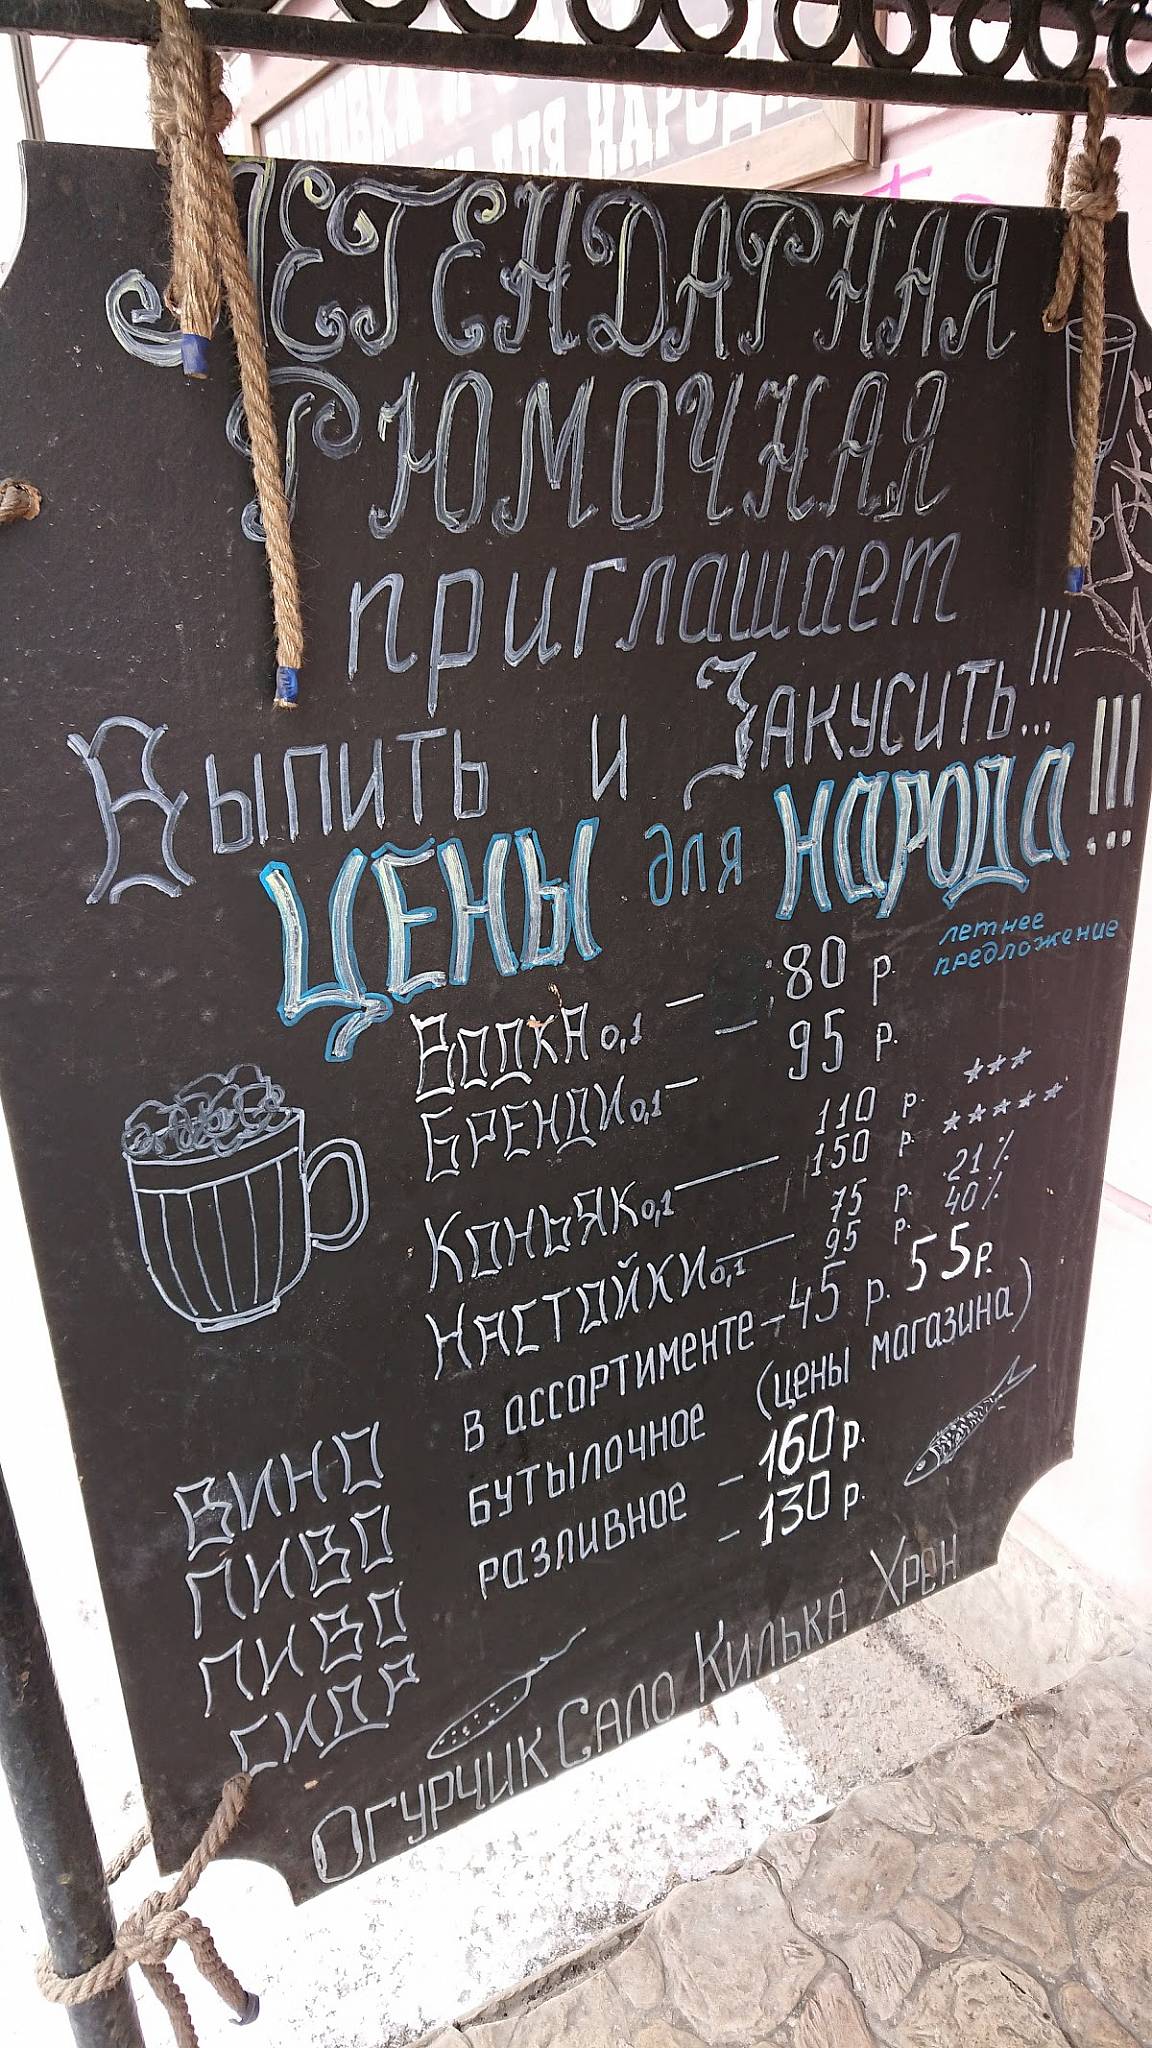 ДЛЯ НАРОДА
ЛЕГЕНДАРНАЯ
РЮМОЧНАЯ
приглашает
Выпить и Закусить...!!!
ЦЕНЫ для НАРОДА!!!
летнее
предложение
ВОДКА 0,1 — 80 р.
БРЕНДИ 0,1 — 95 р.
КОНЬЯК 0,1 — 110 р. ***
150 р. *****
НАСТОЙКИ 0,1 — 75 р. 21%
95 р. 40%
ВИНО в ассортименте - 45 р. 55р.
ПИВО бутылочное (цены магазина)
ПИВО разливное - 160р.
СИДР - 130 р.
Огурчик Сало Килька Хрен